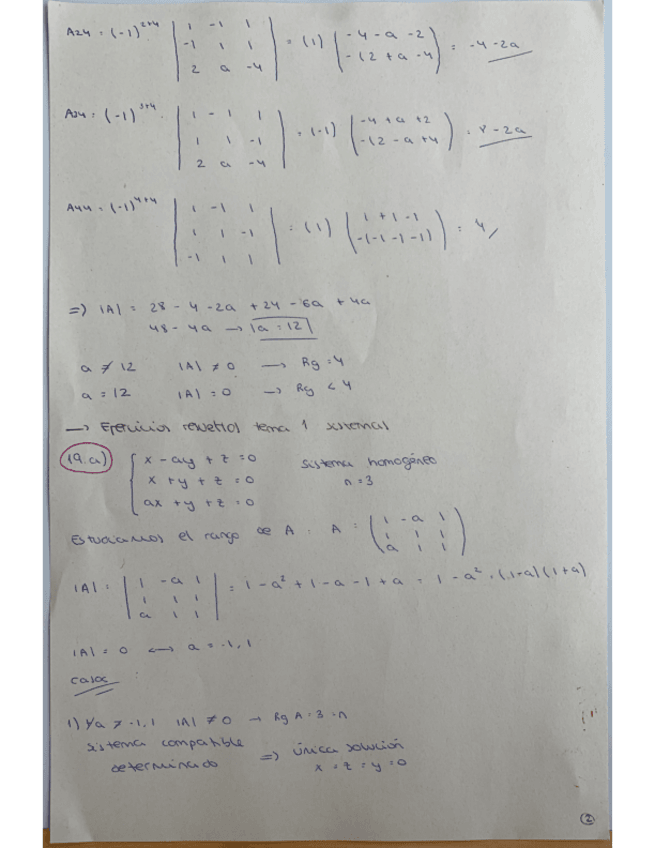 A24 = (-1)²⁺⁴ | 1 -1 1 ; -1 1 1 ; 2 a -4 | = (1) ( -4 - a - 2 ; -(2 + a - 4) ) = -4 - 2a
A34 = (-1)³⁺⁴ · | 1 -1 1 ; 1 1 -1 ; 2 a -4 | = (-1) ( -4 + a + 2 ; -(2 - a + 4) ) = 8 - 2a
A44 = (-1)⁴⁺⁴ | 1 -1 1 ; 1 1 -1 ; -1 1 1 | = (1) ( 1 + 1 - 1 ; -(-1 -1 -1) ) = 4
=) |A| = 28 - 4 - 2a + 24 - 6a + 4a
48 - 4a → |a = 12|
a ≠ 12 |A| ≠ 0 → Rg = 4
a = 12 |A| = 0 → Rg < 4
→ Ejercicios resueltos tema 1 sistemas
19.a) { x - ay + z = 0 sistema homogéneo
x + y + z = 0 n = 3
ax + y + z = 0
Estudiamos el rango de A : A = ( 1 -a 1 ; 1 1 1 ; a 1 1 )
|A| = | 1 -a 1 ; 1 1 1 ; a 1 1 | = 1 - a² + 1 - a - 1 + a = 1 - a² = (1-a)(1+a)
|A| = 0 ⟷ a = -1, 1
Casos
1) ∀a ≠ -1, 1 |A| ≠ 0 → Rg A = 3 = n
sistema compatible determinado =) única solución
x = z = y = 0
2